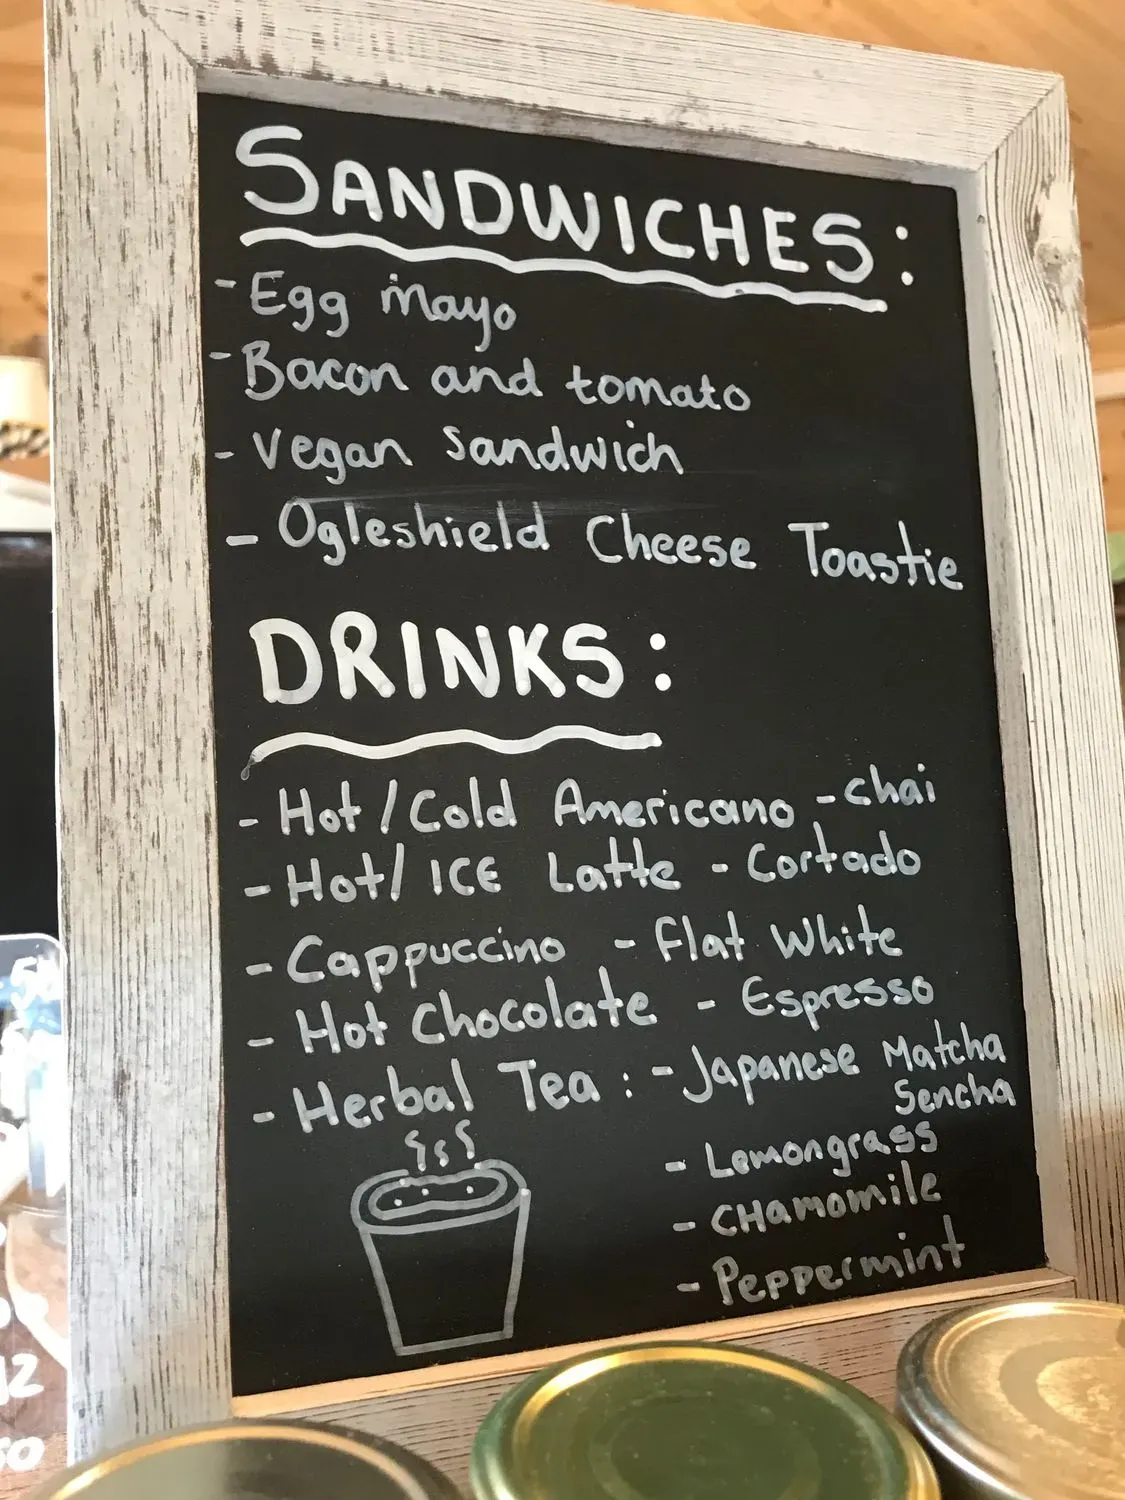 SANDWICHES:
- Egg mayo
- Bacon and tomato
- Vegan sandwich
- Ogleshield Cheese Toastie
DRINKS:
- Hot/Cold Americano - chai
- Hot/ICE Latte - Cortado
- Cappuccino - Flat White
- Hot Chocolate - Espresso
- Herbal Tea: - Japanese Matcha
Sencha
- Lemongrass
- CHamomile
- Peppermint
12
50